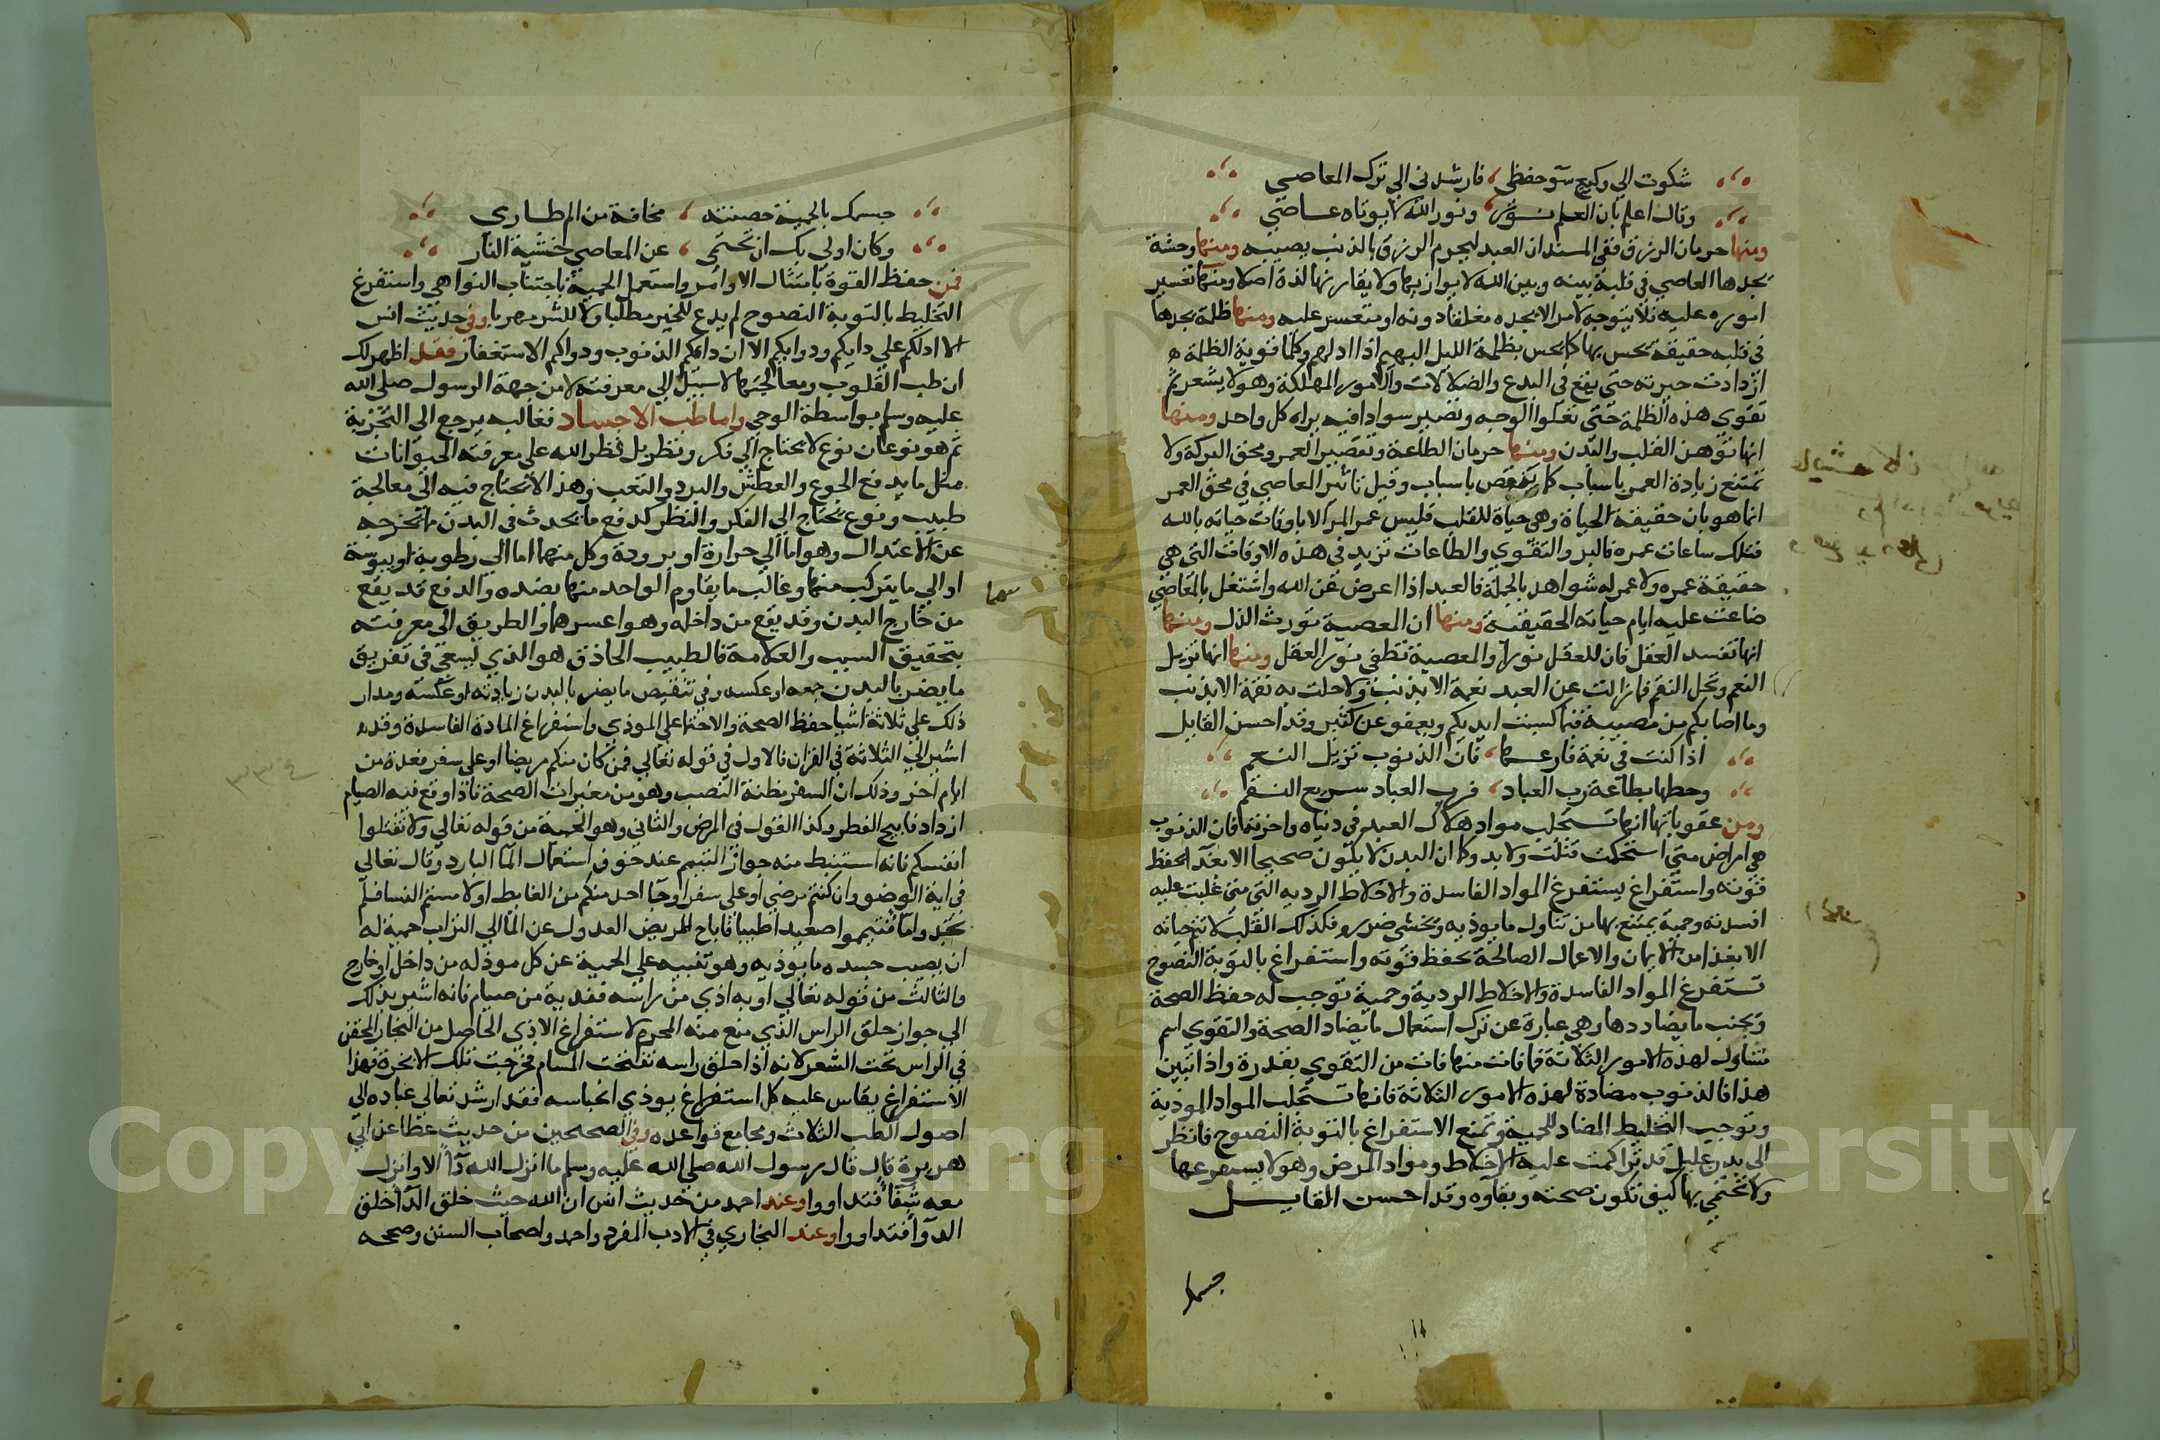 شكوت الي وكيع سوء حفظي ، فارشدني الي ترك المعاصي
وقال اعلم بان العلم نور ، ونور الله لا يوتاه عاصي
ومنها حرمان الرزق ففي المسند ان العبد ليحرم الرزق بالذنب يصيبه ومنها وحشة
يجدها العاصي في قلبه بينه وبين الله لا يوازيها ولا يقارنها لذة اصلا ومنها تعسير
اموره عليه فلا يتوجه لامر الا يجده مغلقا دونه او متعسر عليه ومنها ظلمة يجدها
في قلبه حقيقة يحس بها كما يحس بظلمة الليل البهيم اذا ادلهم وكلما قوية الظلمة
ازدادت حيرته حتي يقع في البدع والضلالات والامور المهلكة وهو لا يشعر ثم
تقوي هذه الظلمة حتي تعلوا الوجه وتصير سوادا فيه يراه كل واحد ومنها
انها توهن القلب والبدن ومنها حرمان الطاعة وتقصير العمر ومحق البركة ولا
تمتنع زيادة العمر باسباب كما ينقص باسباب وقيل تاثير المعاصي في محق العمر
انما هو بان حقيقة الحياة وهي حياة للقلب فليس عمر المر الا باوقات حياته بالله
فتلك ساعات عمره فالبر والتقوي والطاعات تزيد في هذه الاوقات التي هي
حقيقة عمره ولا عمر له سواها وبالجملة فالعبد اذا اعرض عن الله واشتغل بالمعاصي
ضاعت عليه ايام حياته الحقيقية ومنها ان المعصية تورث الذل ومنها
انها تفسد العقل فان للعقل نورا والمعصية تطفي نور العقل ومنها انها تزيل
النعم وتحل النقم فما زالت عن العبد نعمة الا بذنب ولا حلت به نقمة الا بذنب
وما اصابكم من مصيبة فبما كسبت ايديكم ويعفو عن كثير وقد احسن القايل
اذا كنت في نعمة فارعها ، فان الذنوب تزيل النعم
وحطها بطاعة رب العباد ، فرب العباد سريع النقم
ومن عقوباتها انها تستجلب مواد هلاك العبد في دنياه واخرته فان الذنوب
هي امراض متي استحكمت قتلت ولا بد وكما ان البدن لا يكون صحيحا الا بغذا يحفظ
قوته واستفراغ يستفرغ المواد الفاسدة والاخلاط الردية التي متي غلبت عليه
افسدته وحمية يمتنع بها من تناول ما يوذيه ويخشي ضرره فكذلك القلب لا تتم حياته
الا بغذا من الايمان والاعمال الصالحة يحفظ قوته واستفراغ بالتوبة النصوح
تستفرغ المواد الفاسدة والاخلاط الردية وحمية توجب له حفظ الصحة
وتجنب ما يضاددها وهي عبارة عن ترك استعمال ما يضاد الصحة والتقوي اسم
متناول لهذه الامور الثلاثة فما فات منها فات من التقوي بقدره واذا تبين
هذا فالذنوب مضادة لهذه الامور الثلاثة فانها تستجلب المواد الموذية
وتوجب التخليط المضاد للحمية وتمنع الاستفراغ بالتوبة النصوح فانظر
الي بدن عليل قد تراكمت عليه الاخلاط ومواد المرض وهو لا يستفرغها
ولا تحتمي بها كيف تكون صحته وبقاوه وقد احسن القايل
جسمك
جسمك بالحمية حصنته ، مخافة من الم طاري
وكان اولي بك ان تحتمي ، عن المعاصي خشية النار
فمن حفظ القوة بامتثال الاوامر واستعمل الحمية باجتناب النواهي واستفرغ
التخليط بالتوبة النصوح لم يدع للخير مطلبا ولا للشر مهربا وفي حديث انس
الا ادلكم علي دايكم ودوايكم الا ان داكم الذنوب ودواكم الاستغفار فقد اظهر لك
ان طب القلوب ومعالجتها لا سبيل الي معرفته الا من جهة الرسول صلي الله
عليه وسلم بواسطة الوحي واما طب الاجساد فغالبه يرجع الي التجربة
ثم هو نوعان نوع لا يحتاج الي فكر ونظر بل فطر الله علي معرفته الحيوانات
مثل ما يدفع الجوع والعطش والبرد والتعب وهذا لا يحتاج فيه الي معالجة
طبيب ونوع يحتاج الي الفكر والنظر كدفع ما يحدث في البدن مما يخرجه
عن الاعتدال وهو اما الي حرارة او برودة وكل منهما اما الي رطوبة او يبوسة
او الي ما يتركب منهما وغالب ما يقاوم الواحد منها بضده والدفع قد يقع
من خارج البدن وقد يقع من داخله وهو اعسرهما والطريق الي معرفته
بتحقيق السبب والعلامة فالطبيب الحاذق هو الذي يسعي في تفريق
ما يضر بالبدن جمعه او عكسه وفي تنقيص ما يضر بالبدن زيادته او عكسه ومدار
ذلك علي ثلاثة اشيا حفظ الصحة والاحتما عن الموذي واستفراغ المادة الفاسدة وقد
اشير الي الثلاثة في القران فالاول في قوله تعالي فمن كان منكم مريضا او علي سفر فعدة من
ايام اخر وذلك ان السفر مظنة النصب وهو من مغيرات الصحة فاذا وقع فيه الصيام
ازداد فابيح الفطر وكذا القول في المرض والثاني وهو الحمية من قوله تعالي ولا تقتلوا
انفسكم فانه استنبط منه جواز التيمم عند خوف استعمال الما البارد وقال تعالي
في اية الوضو وان كنتم مرضي او علي سفر او جا احد منكم من الغايط او لامستم النسا فلم
تجدوا ما فتيمموا صعيدا طيبا فاباح للمريض العدول عن الما الي التراب حمية له
ان يصيب جسده ما يوذيه وهو تنبيه علي الحمية عن كل موذ له من داخل او خارج
والثالث من قوله تعالي او به اذي من راسه ففدية من صيام فانه اشير بذلك
الي جواز حلق الراس الذي منع منه المحرم لاستفراغ الاذي الحاصل من البخار المحتقن
في الراس تحت الشعر لانه اذا حلق راسه تفتحت المسام فخرجت تلك الابخرة فهذا
الاستفراغ يقاس عليه كل استفراغ يوذي انحباسه فقد ارشد تعالي عباده الي
اصول الطب الثلاث ومجامع قواعده وفي الصحيحين من حديث عطا عن ابي
هريرة قال قال رسول الله صلي الله عليه وسلم ما انزل الله دا الا وانزل
معه شفا فتداووا وعند احمد من حديث انس ان الله حيث خلق الدا خلق
الدوا فتداووا وعند البخاري في الادب المفرد واحمد واصحاب السنن وصححه
Copy ng S ersity
195